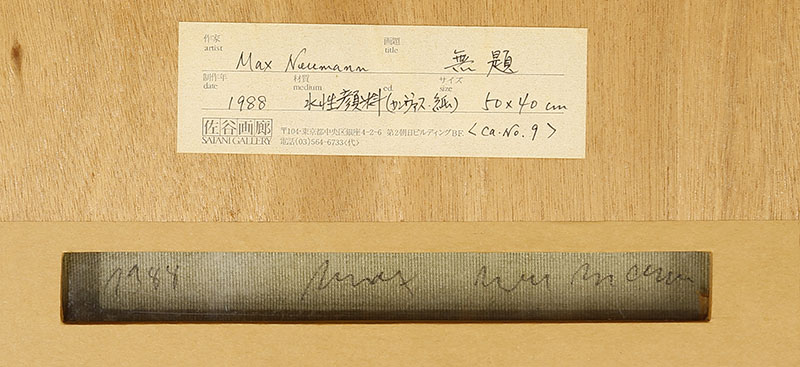 作家 画題
artist title
Max Neumann 無題
制作年 材質 サイズ
date medium ed. size
1988 水性顔料(カンヴァス・紙) 50×40cm
佐谷画廊 〒104・東京都中央区銀座4-2-6 第2朝日ビルディングB.F. <Ca.No.9>
SATANI GALLERY 電話(03)564-6733(代)
1988 Max Neumann